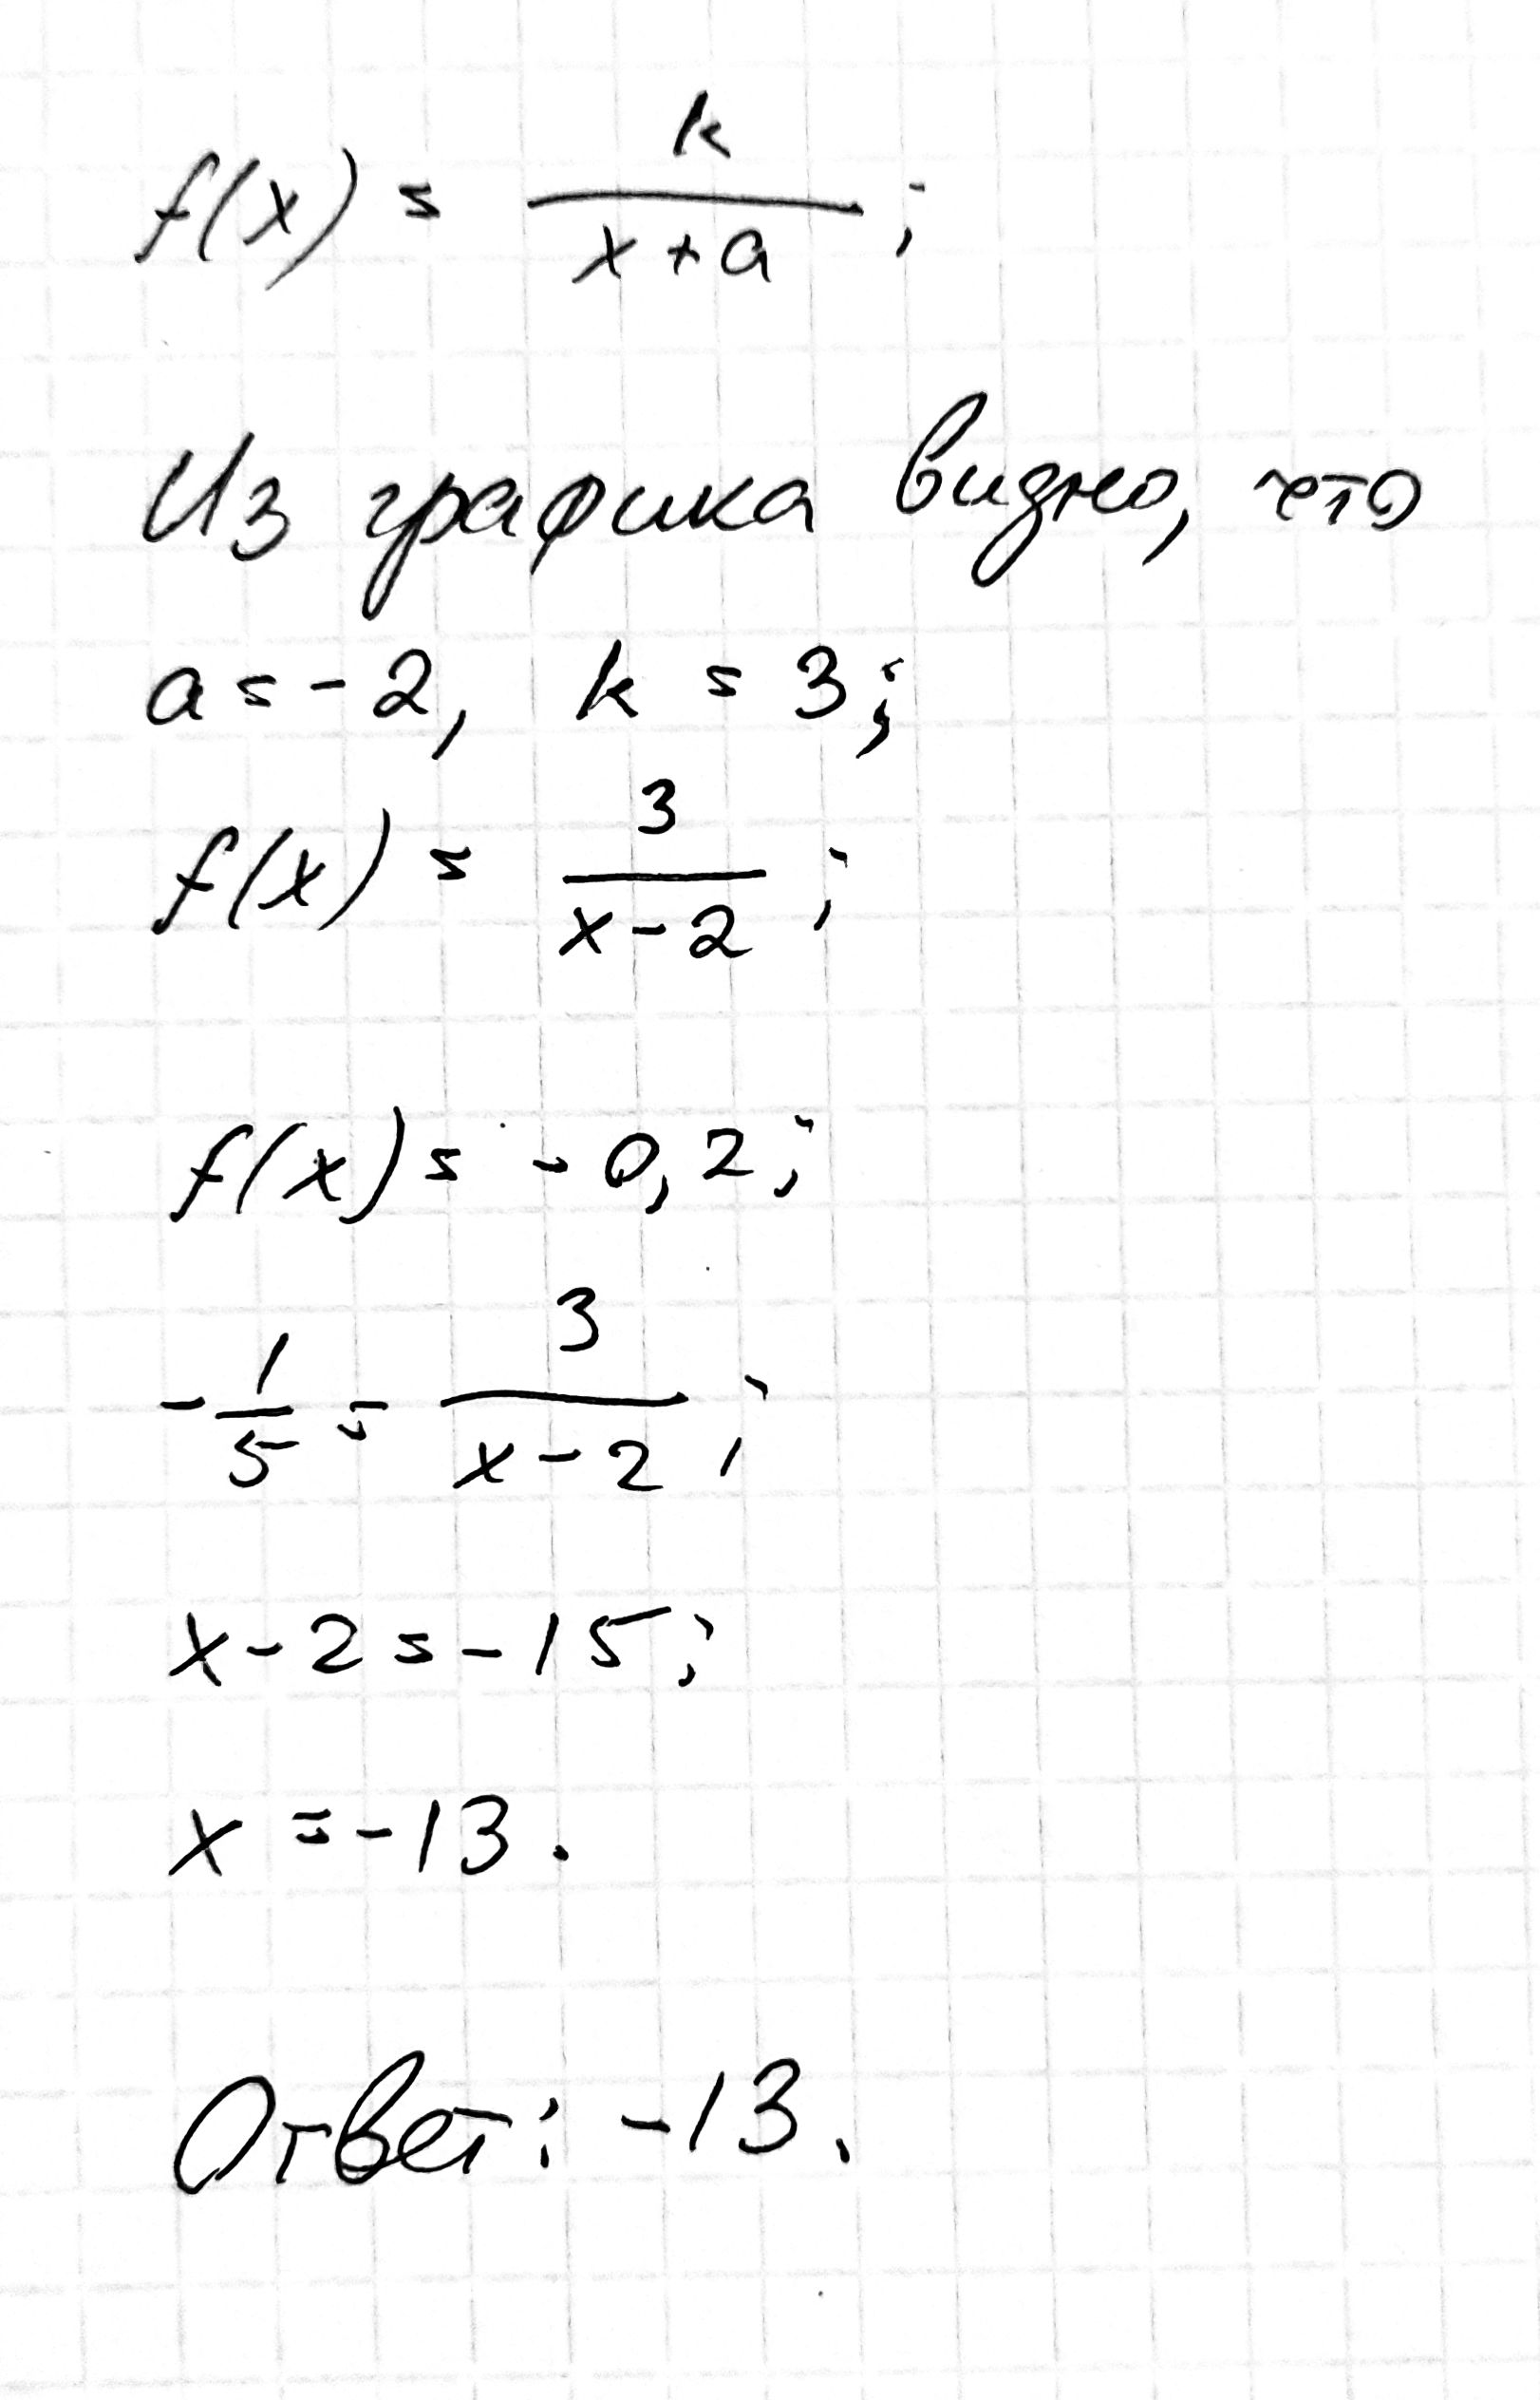 f(x) = k/(x+a);
Из графика видно, что
a = -2, k = 3;
f(x) = 3/(x-2);
f(x) = -0,2;
-1/5 = 3/(x-2);
x-2 = -15;
x = -13.
Ответ: -13.